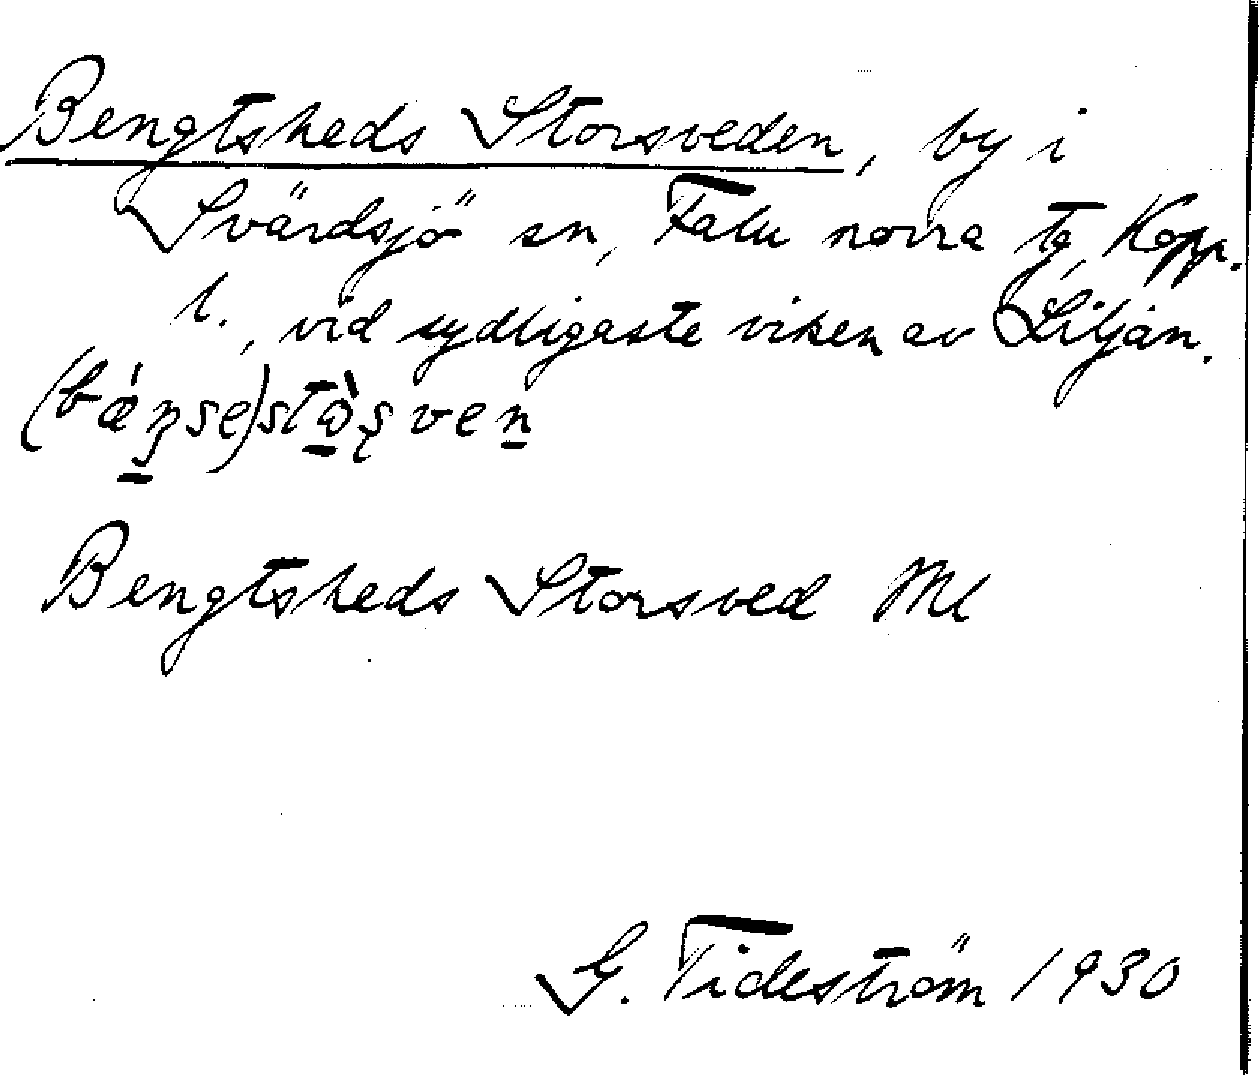 Bengtsheds Storsveden, by i
Svärdsjö sn, Falu norra tg, Kopp.
l., vid sydligaste viken av Liljan.
(bǽn̠se)stɷ̠̀ʂven̠
Bengtsheds Storsved Ml
G. Tideström 1930